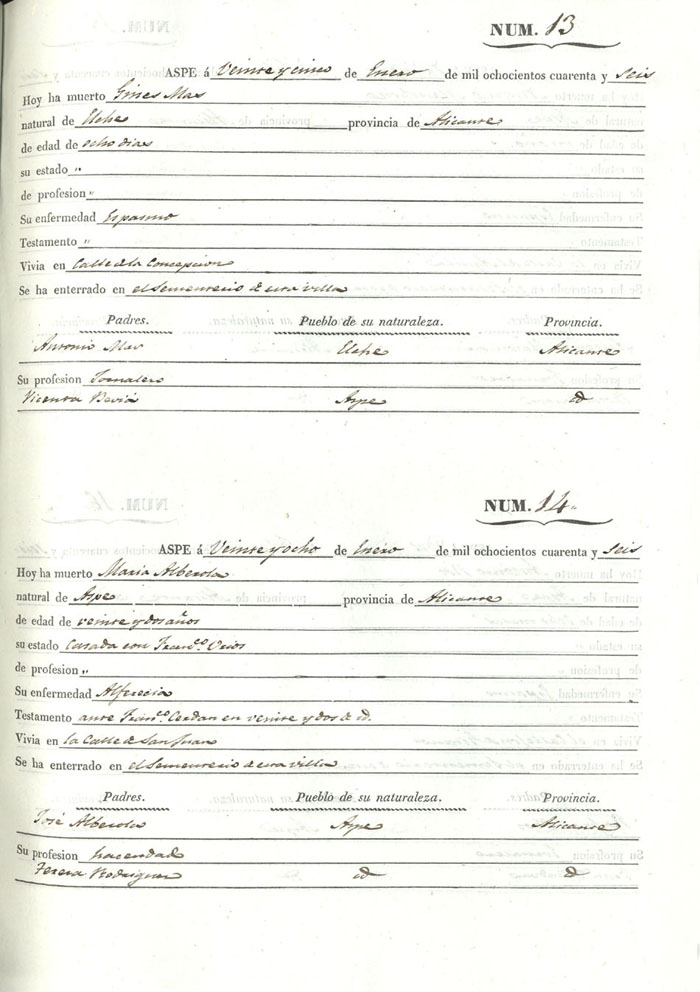 NUM. 13
ASPE á Veinte y cinco de Enero de mil ochocientos cuarenta y Seis
Hoy ha muerto Gines Mas
natural de Elche provincia de Alicante
de edad de ocho dias
su estado "
de profesion "
Su enfermedad Espasmo
Testamento "
Vivia en Calle de la Concepcion
Se ha enterrado en el Sementerio de esta villa
Padres. Pueblo de su naturaleza. Provincia.
Antonio Mas Elche Alicante
Su profesion Jornalero
Vicenta Beviá Aspe id
NUM. 14
ASPE á Veinte y ocho de Enero de mil ochocientos cuarenta y Seis
Hoy ha muerto Maria Alberola
natural de Aspe provincia de Alicante
de edad de veinte y dos años
su estado Casada con Franco.
de profesion "
Su enfermedad Alferecia
Testamento ante Franco. Cerdan en veinte y dos de id.
Vivia en la Calle de San Juan
Se ha enterrado en el Sementerio de esta villa
Padres. Pueblo de su naturaleza. Provincia.
José Alberola Aspe Alicante
Su profesion hacendado
Teresa Rodriguez id id